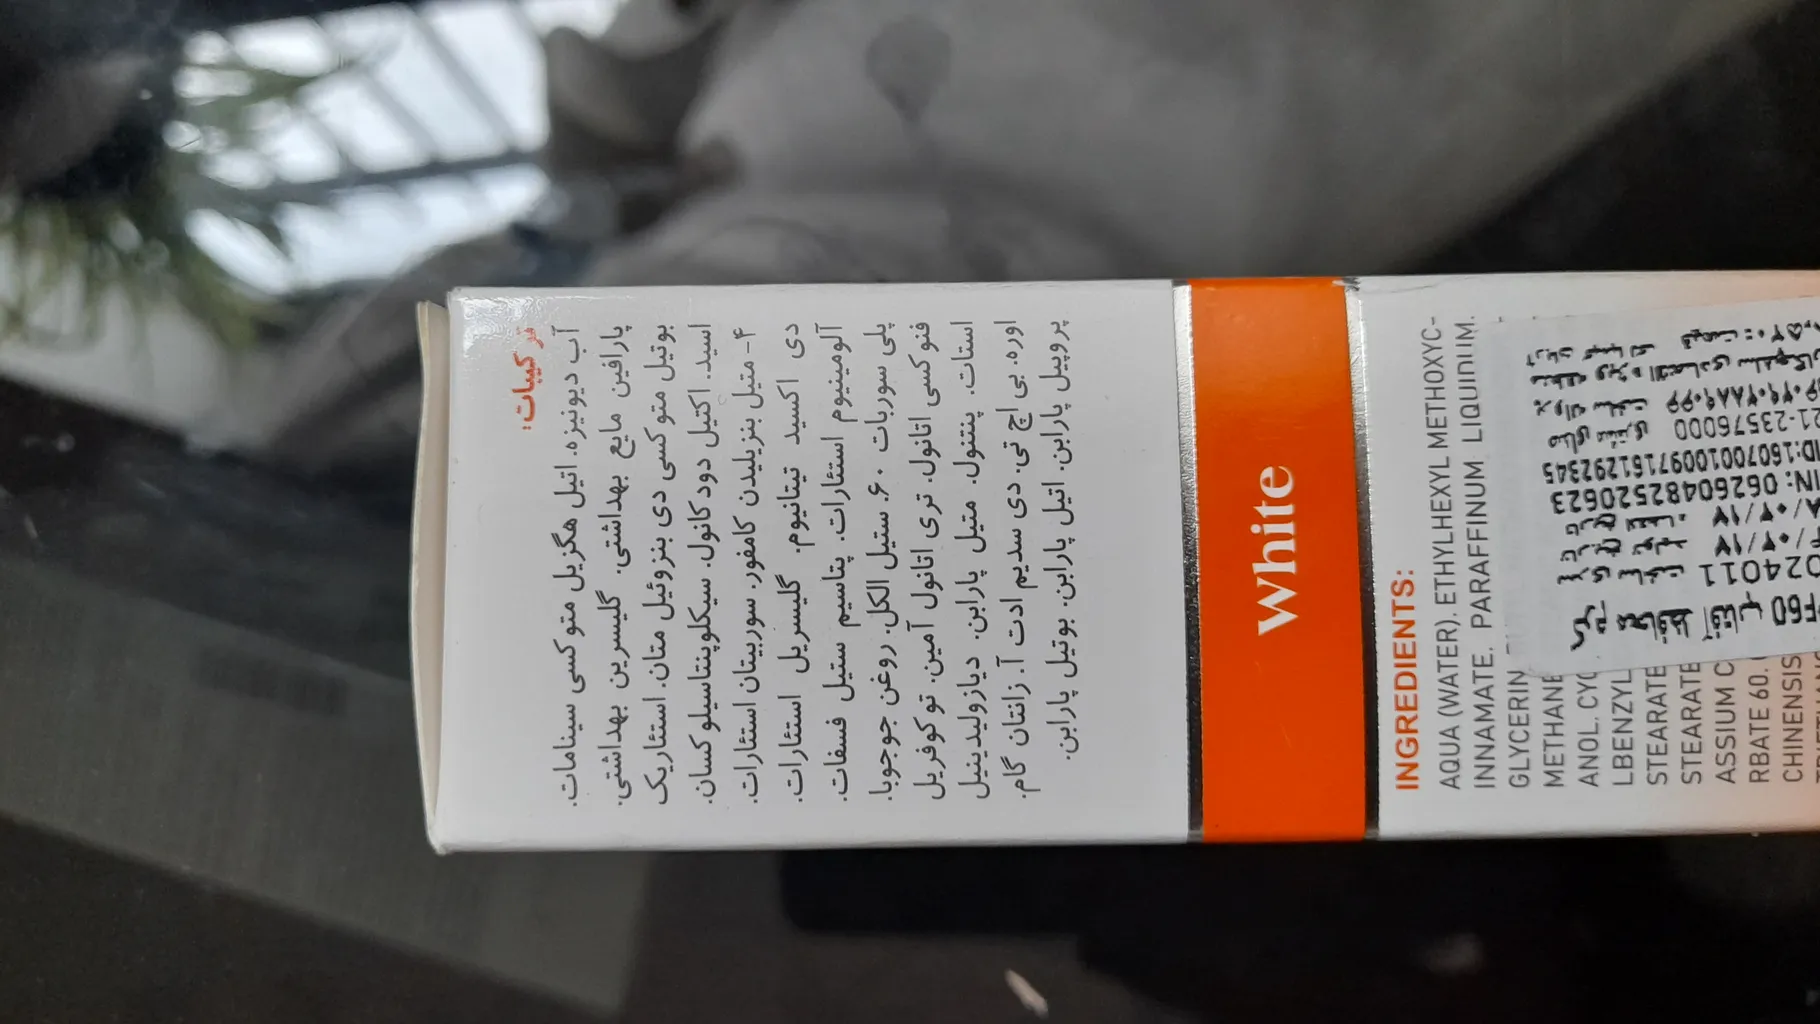 ترکیبات:
آب دیونیزه. اتیل هگزیل متوکسی سینامات.
پارافین مایع بهداشتی. گلیسرین بهداشتی.
بوتیل متوکسی دی بنزوئیل متان. استئاریک
اسید. اکتیل دودکانول. سیکلوپنتاسیلوکسان.
۴- متیل بنزیلیدن کامفور. سوربیتان استئارات.
دی اکسید تیتانیوم. گلیسریل استئارات.
آلومینیوم استئارات. پتاسیم ستیل فسفات.
پلی سوربات ۶۰. ستیل الکل. روغن جوجوبا.
فنوکسی اتانول. تری اتانول آمین. توکوفریل
استات. پنتنول. متیل پارابن. دیازولیدینیل
اوره. بی اچ تی. دی سدیم ادت آ. زانتان گام.
پروپیل پارابن. اتیل پارابن. بوتیل پارابن.
White
INGREDIENTS:
AQUA (WATER). ETHYLHEXYL METHOXYC-
INNAMATE. PARAFFINUM LIQUIDUM.
GLYCERIN
METHANE
ANOL. CYC
LBENZYL
STEARATE
STEARATE
ASSIUM C
RBATE 60.
CHINENSIS
کرم محافظ آفتاب F60
024011 سری ساخت
IN: 06260482520623
ID:16070010097161292345
21-23576000